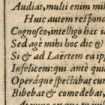 Audies, multi enim mi
Huic autem respon
Cognosco, intelligo hic ad
Sed age mihi hoc dic &
Si & ad Laertem ea ip
Infelicem: qui antè qui
Operaque spectabat cum
Bibebat & comedebat